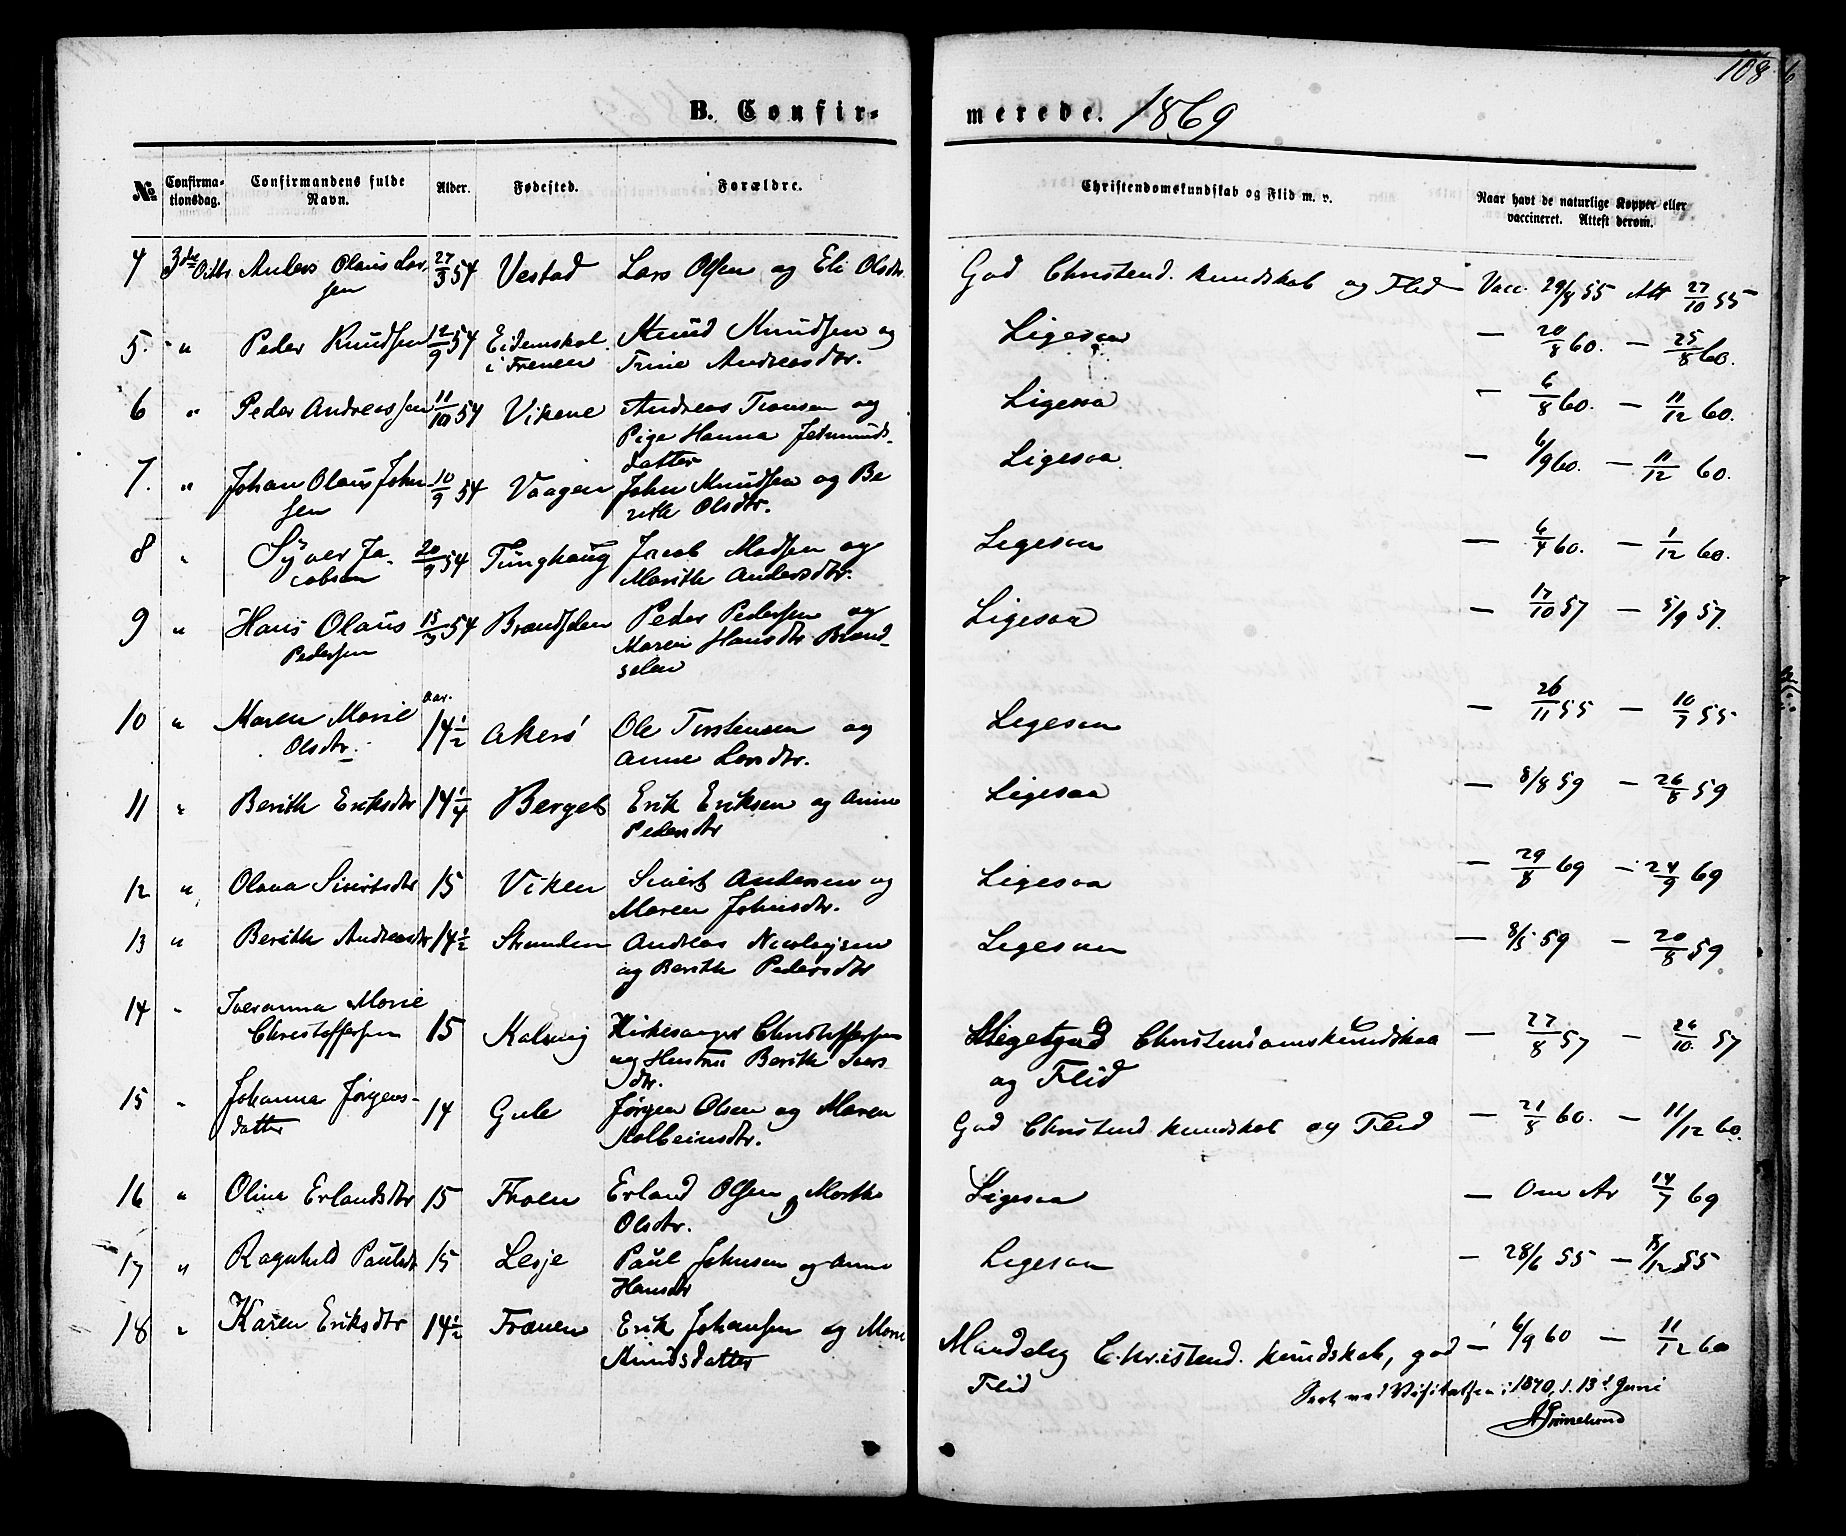 108
B. Confirmerede. 1869
No
Confirmationsdag.
Confirmandens fulde Navn.
Alder.
Fødested.
Forældre.
Christendomskundskab og Flid m. v.
Naar havt de naturlige Kopper eller vaccineret. Attest derom.
4 3die Octbr Anders Olaus Lar- 27/3 54 Vestad Lars Olsen og Eli Olsdtr. God Christend. kundskab og Flid Vacc. 29/8 55 Att 27/10 55
sen
5. " Peder Knudsen 12/9 54 Eidemskol. Knud Knudsen og Ligesaa — 20/8 60. — 25/8 60.
i Frenen Trine Andreasdtr.
6 " Peder Andreassen 11/10 54 Vikene Andreas Tronsen og Ligesaa — 6/8 60. — 11/12 60.
Pige Hanna Jetmunds-
datter
7. " Johan Olaus John 10/9 54 Vaagen John Knudsen og Be Ligesaa — 6/9 60. — 11/12 60.
sen rith Olsdtr.
8 " Syver Ja- 20/9 54 Tunghaug Jacob Madsen og Ligesaa — 6/4 60. — 1/12 60.
cobsen Marith Andersdtr.
9 " Hans Olaus 15/3 54 Brændslen Peder Pedersen og Ligesaa — 17/10 57 — 5/9 57.
Pedersen Maren Hansdtr Brænd-
selen
10 " Karen Marie Aar. 14 1/2 Akerø Ole Torstensen og Ligesaa — 26/11 55 — 10/7 55
Olsdtr. Anne Larsdtr.
11 " Berith Eriksdtr 14 1/4 Berget Erik Eriksen og Anne Ligesaa — 8/8 59 — 26/8 59
Pedersdtr
12 " Olava Sivertsdtr 15 Viken Sivert Andersen og Ligesaa — 29/8 69 — 24/9 69
Maren Johnsdtr.
13 " Berith Andreasdtr 14 1/2 Stranden Andreas Nicolaysen Ligesaa — 8/5 59 — 20/8 59
og Berith Pedersdtr
14 " Iveranna Marie
Christoffersen 15 Kalsnig Kirkesanger Christoffersen Meget god Christendomskundskab — 27/8 57 — 26/10. 57
og Hustru Berith Ivers og Flid
dtr.
15 " Johanna Jørgens- 14 Gule Jørgen Olsen og Maren God Christend kundskab og Flid — 21/8 60. — 11/12 60.
datter Kolbeinsdtr.
16 " Olina Erlandsdtr 15 Fræen Erland Olsen og Marthe Ligesaa — Om Ar 14/7 69
Olsdtr.
17 " Ragnhild Paulsdtr 15 Lesje Paul Johnsen og Anne Ligesaa — 28/6 55 — /12 55
Hansdtr
18 " Karen Eriksdtr 14 1/2 Frænen Erik Johansen og Marie Maadelig Christend. kundskab, god — 6/9 60 — 11/12 60
Knudsdatter Flid
Seet ved Visitatsen i 1870, d. 13d Juni